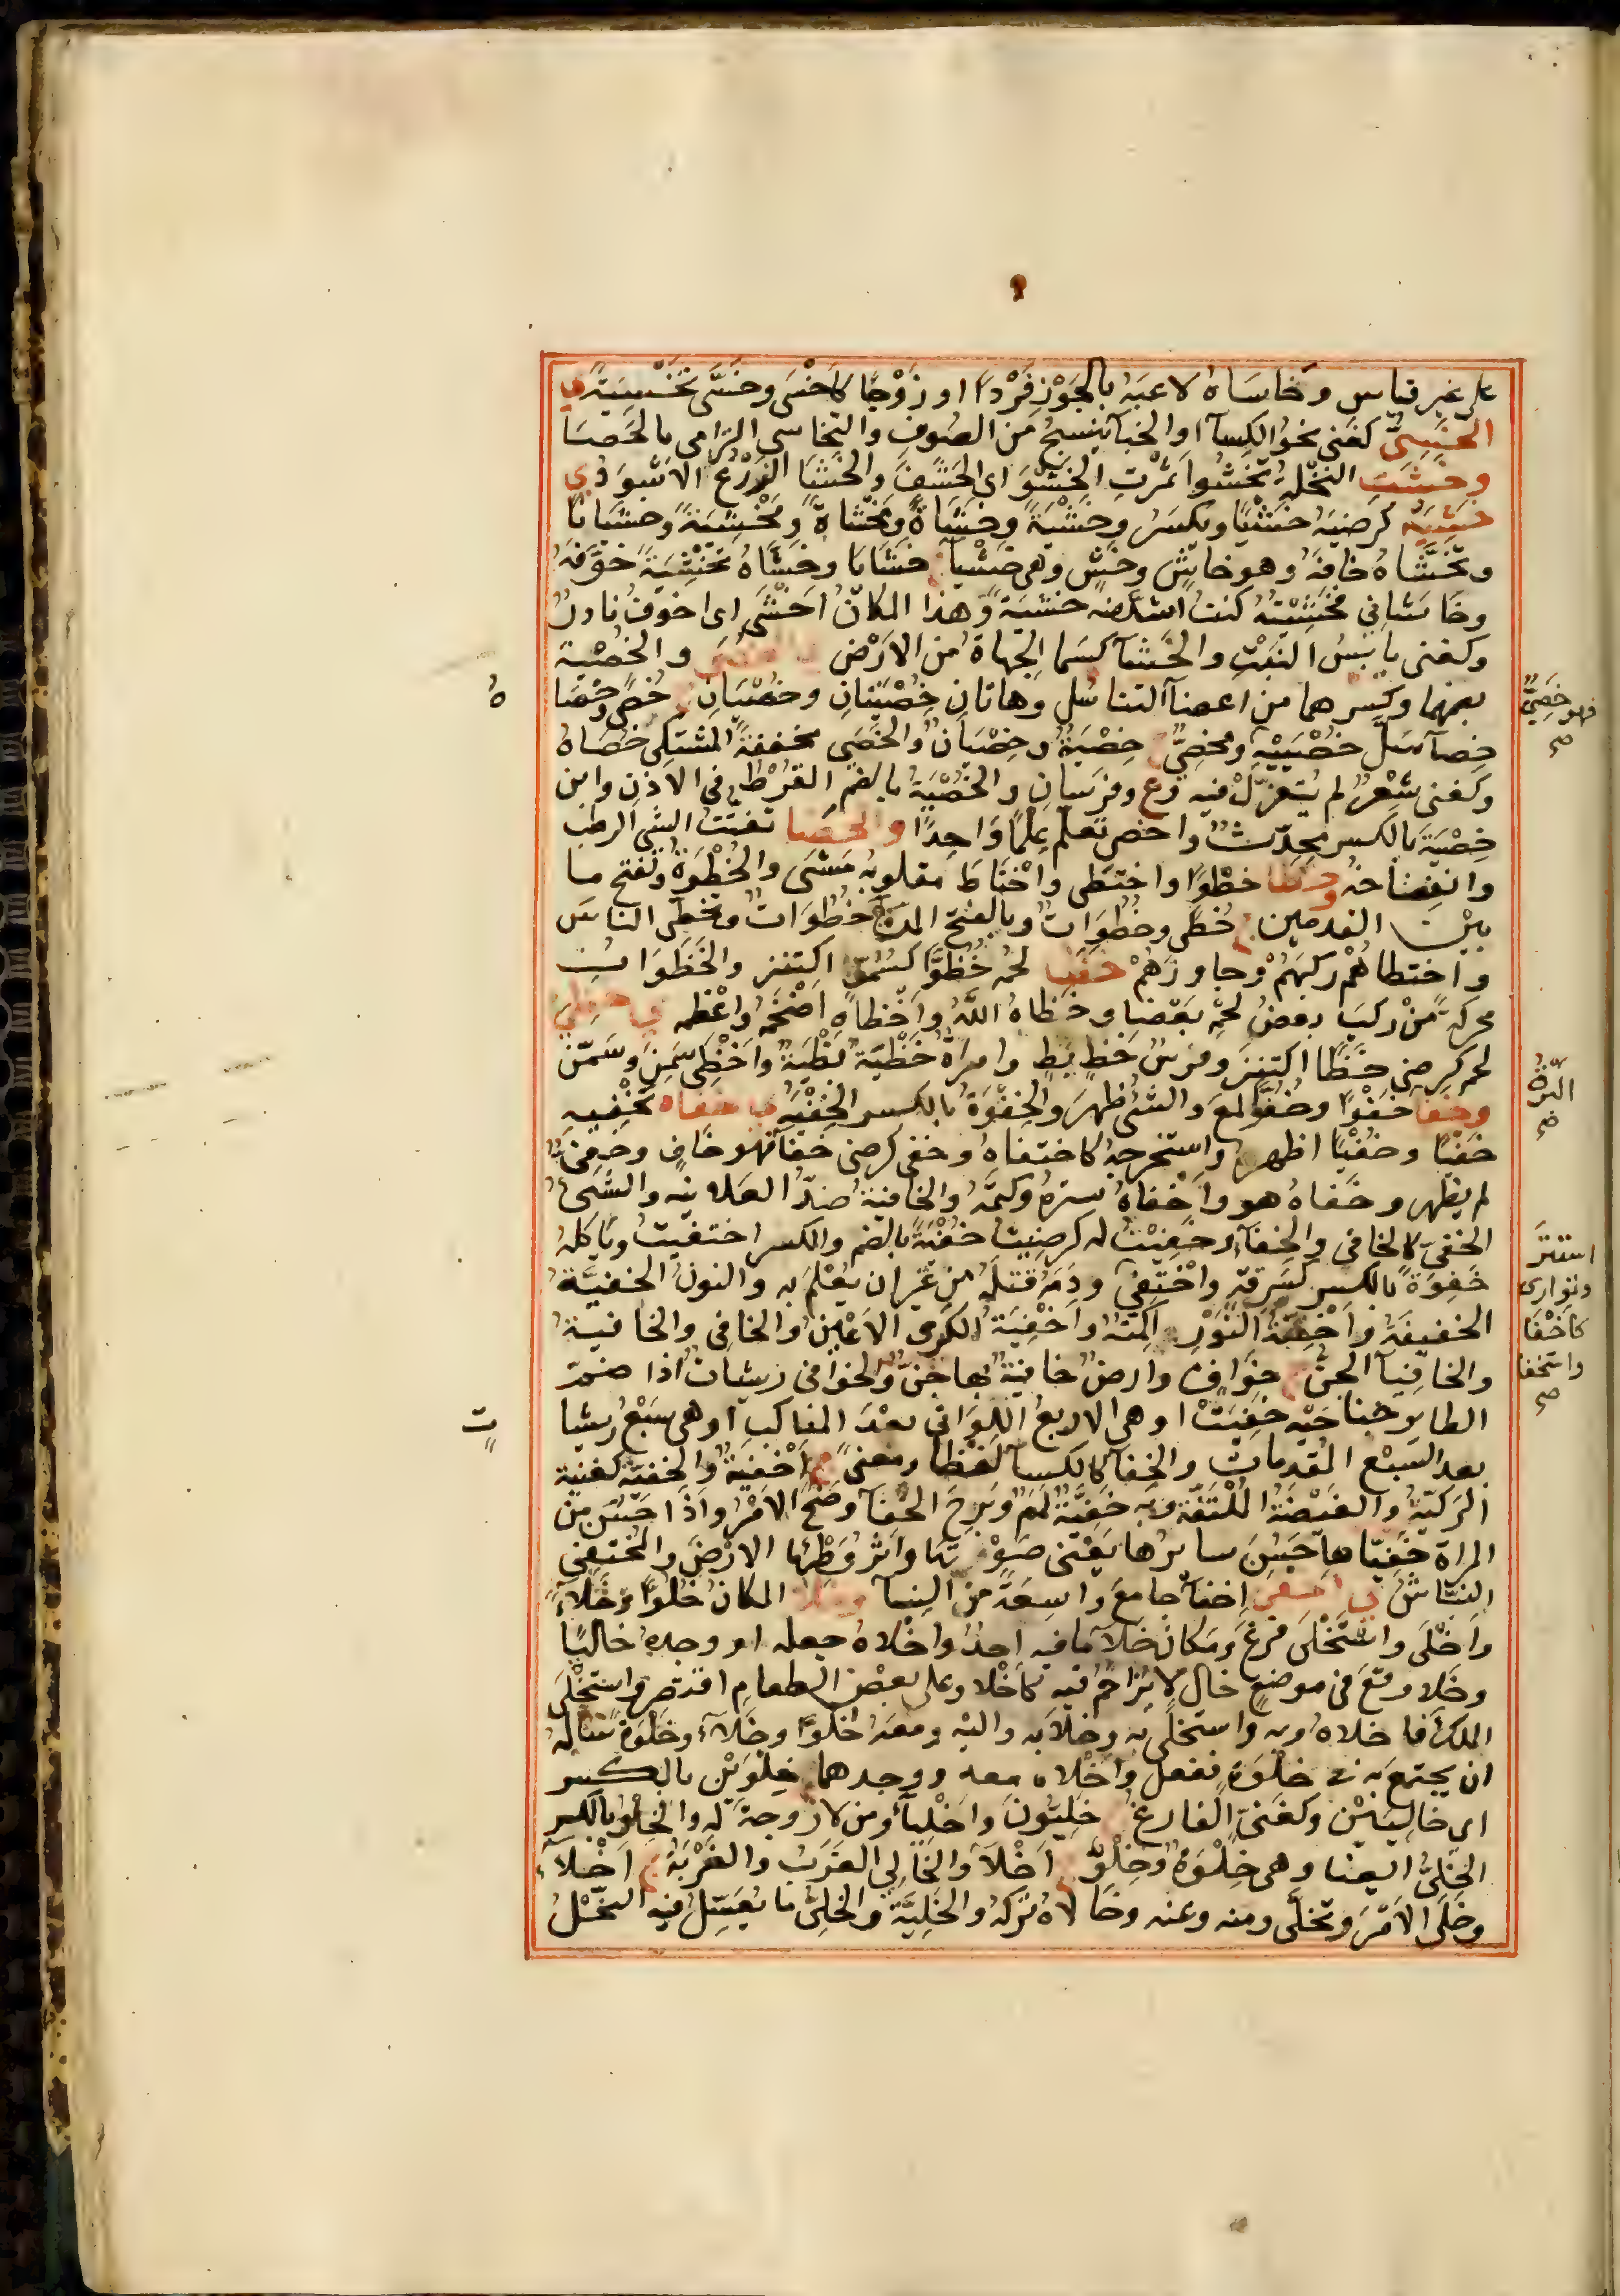 على غير قياس وخاساه لاعبه بالجوز فردا او زوجا كاخسى وخسى تخسية ي
الخسى كغنى نحو الكساء او الخباء ينسج من الصوف والتخاسى الترامى بالحصا
وخشت النخلة تخشوا تمرت الخشو اى الحشف والخشا الزرع الاسود ى
خشيه كرضيه خشيا ويكسر وخشية وخشاة ومخشاة ومخشية وخشيانا
وتخشاه خافه وهو خاش وخش وهى خشيا ج خشايا وخشاه تخشية خوفه
وخاشانى فخشيته كنت اشد منه خشية وهذا المكان اخشى اى اخوف نادر
وكغنى يابس النبت والخشاء كسماء الجهاة من الارض والخصية
بضمهما وكسرهما من اعضاء التناسل وهاتان خصيتان وخصيان ج خصى وخصا
فهو خصى صح
خصاء سل خصييه ومخصى ج خصية وخصيان والخصى مخففة المشتكى خصاه
وكغنى شعر لم يتغزل فيه وع وفرسان والخصية بالضم القرط فى الاذن وابن
خصية بالكسر محدث واخصى تعلم علما واحدا والخضا تفتت الشى الرطب
وانفضاخه وخطا خطوا واختطى واختاط مقلوبة مشى والخطوة وتفتح ما
بين القدمين ج خطى وخطوات وبالفتح المرة ج خطوات وتخطى الناس
واختطاهم ركبهم وجاوزهم خظا لحمه خظوا كسمو اكتنز والخظوات
محركة من ركب بعض لحمه بعضا وخظاه الله واخظاه اضخمه واعظمه ى خظى
لحمه كرضى خظا اكتنز وفرس خظ بظ وامراة خظية بظية واخظى سمن وسمن
وخفا خفوا وخفوا لمع والشئ ظهر والخفوة بالكسر الخفية ى خفاه يخفيه
خفيا وخفيا اظهره واستخرجه كاختفاه وخفى كرضى خفاء فهو خاف وخفى
لم يظهر وخفاه هو واخفاه ستره وكتمه والخافية ضد العلانية والشئ
الخفى كالخافى والخفاء وخفيت له كرضيت خفية بالضم والكسر اختفيت وياكله
خفوة بالكسر يسرقه واختفى ودمه قتله من غير ان يعلم به والنون الخفية
استتر وتوارى كاخفا واستخفا صح
الخفيفة واخفية النور اكمته واخفية الكرى الاعين والخافى والخافية
والخافياء الجن ج خواف وارض خافية بها جن والخوافى ريشات اذا ضم
الطاير جناحيه خفيت او هى الاربع اللواتى بعد المناكب او هى سبع ريشا
ت
بعد السبع المقدمات والخفا كالكسا لفظا ومعنى ج اخفية والخفية كغنية
الركية والغيضة الملتفة وبه خفية لمم وبرح الخفاء وضح الامر واذا حسن من
المراة خفياها حسن سايرها يعنى صوتها واثر وطئها الارض والمختفى
النباش المكان خلوا وخلاء
واخلى واستخلى فرغ ومكان خلاء ما فيه احد واخلاه جعله او وجده خاليا
وخلا وقع فى موضع خال لا يزاحم فيه كاخلا وعلى بعض الطعام اقتصر واستخلى
الملك فاخلاه وبه واستخلى به وخلا به واليه ومعه خلوا وخلاء وخلوة ساله
ان يجتمع به فى خلوة ففعل واخلاه معه ووجدهما خلوين بالكسر
اى خاليين وكغنى الفارغ ج خليون واخلياء ومن لا زوجة له والخلو بالكسر
الخلى ايضا وهى خلوة وخلو ج اخلاء والخالى العزب والعزبة ج اخلاء
وخلى الامر وتخلى ومنه وعنه وخالاه تركه والخلية والخلى ما يعسل فيه النحل